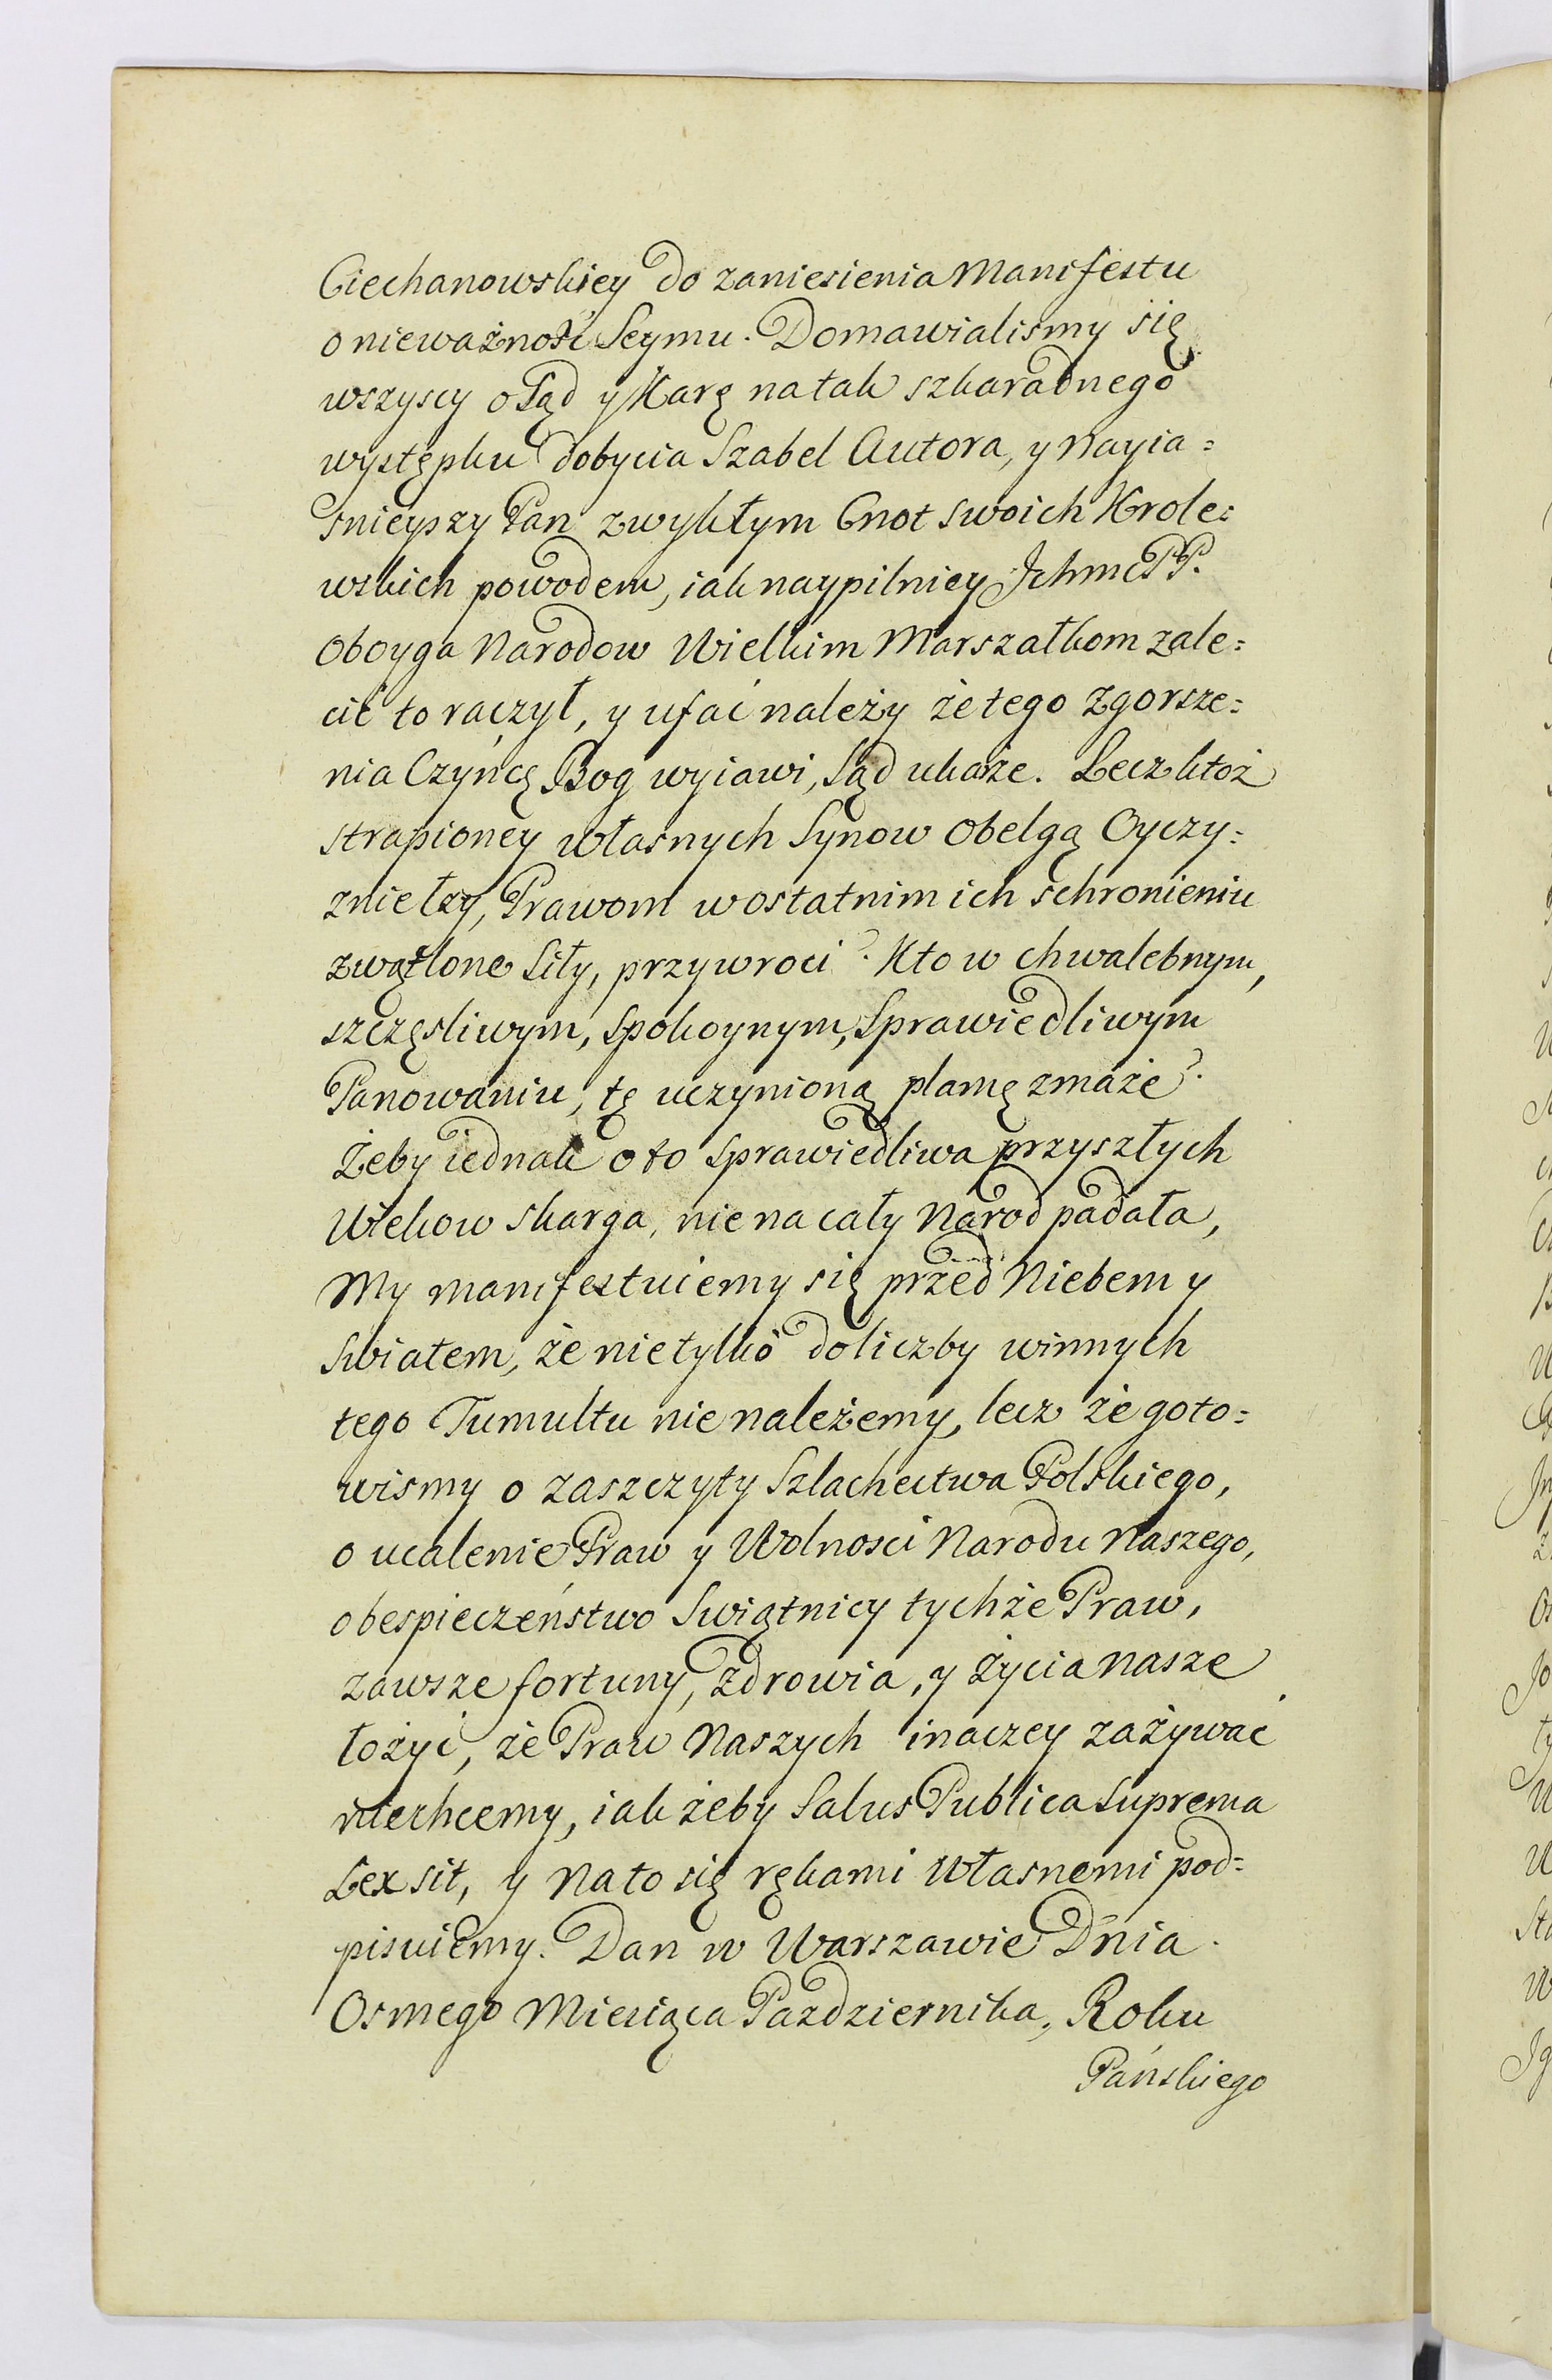 Ciechanowskiey do zaniesienia Manifestu
o nieważność Seymu. Domawialismy się
wszyscy o Sąd y Karę na tak szkaradnego
występku dobycia Szabel Autora, y Nayia=
snieyszy Pan zwykłym Cnot swoich Krole=
wskich powodem, iak naypilniey Jchmć PP.
Oboyga Narodow Wielkim Marszałkom zale=
cić to raczył, y ufać należy że tego zgorsze=
nia Czyńcę Bog wyiawi, Sąd ukaże. Lecz ktoż
strapioney własnych Synow obelgą Oyczy=
znie łzy, Prawom w ostatnim ich schronieniu
zwątlone Siły, przywroci? Kto w chwalebnym,
szczęsliwym, Spokoynym, Sprawiedliwym
Panowaniu, tę uczynioną plamę zmaże?
Żeby iednak o to sprawiedliwa przyszłych
Wiekow skarga, nie na cały Narod padała,
My manifestuiemy się przed Niebem y
Swiatem, że nie tylko do liczby winnych
tego Tumultu nie należemy, lecz że goto=
wismy o zaszczyty Szlachectwa Polskiego,
o ucalenie Praw y Wolnosci Narodu Naszego,
o bespieczeństwo Swiątnicy tychże Praw,
zawsze fortuny, zdrowia, y życia nasze
łożyć, że Praw Naszych inaczey zażywać
niechcemy, iak żeby Salus Publica Suprema
Lex sit, y na to się rękami własnemi pod=
pisuiemy. Dan w Warszawie Dnia
Osmego Miesiąca Pazdziernika, Roku
Pańskiego